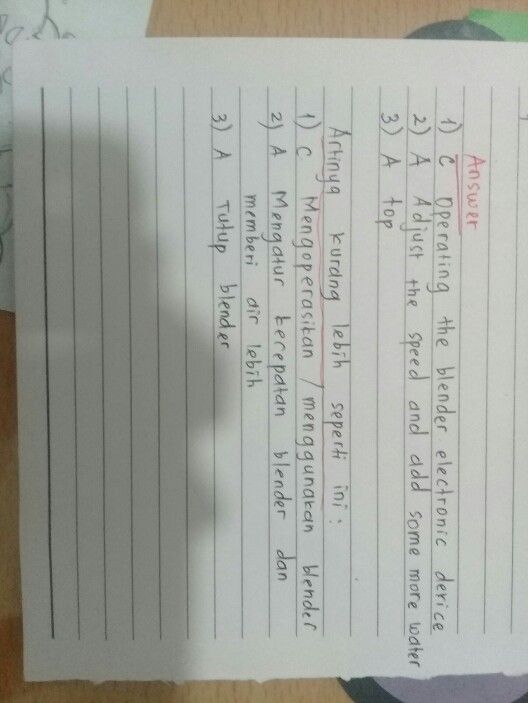 Answer
1) C Operating the blender electronic device
2) A Adjust the speed and add some more water
3) A top
Artinya kurang lebih seperti ini:
1) C Mengoperasikan / menggunakan blender
2) A Mengatur kecepatan blender dan
memberi air lebih
3) A Tutup blender